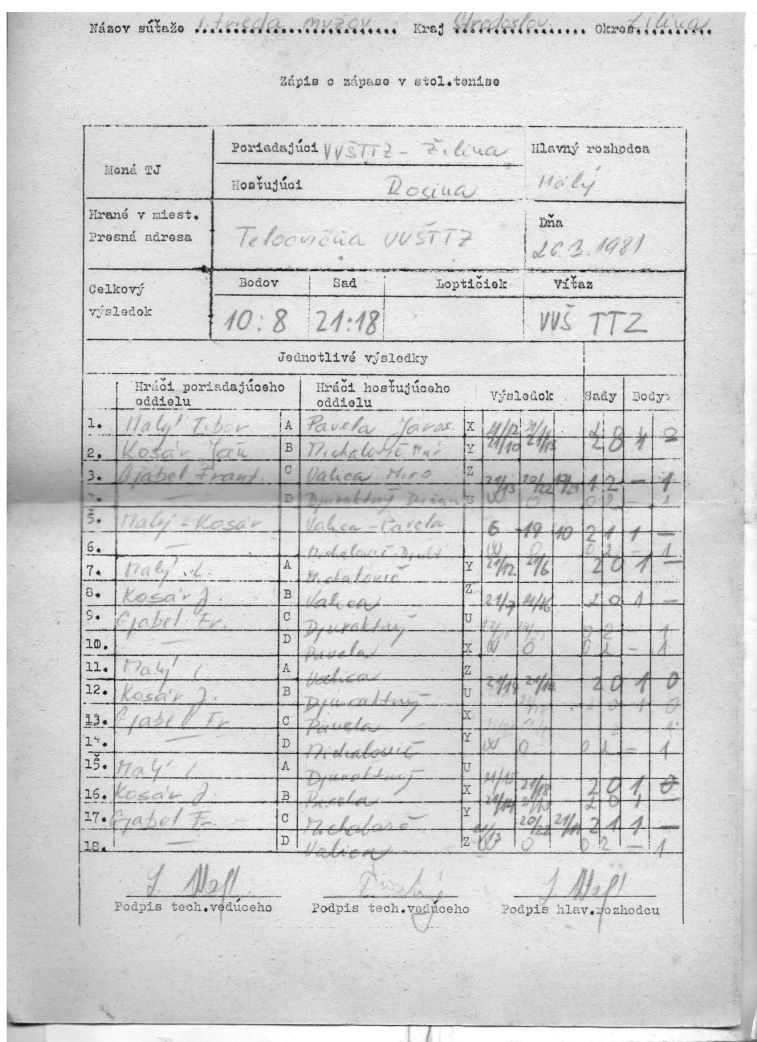 Názov súťaže I. trieda mužov Kraj Stredoslov. Okres Žilina
Zápis o zápase v stol.tenise
Mená TJ
Poriadajúci VVŠTTZ - Žilina
Hlavný rozhodca
Hosťujúci Rosina
Malý
Hrané v miest.
Presná adresa
Telocvičňa VVŠTTZ
Dňa
26.3.1981
Celkový výsledok
Bodov Sad Loptičiek Víťaz
10:8 21:18 VVŠ TTZ
Jednotlivé výsledky
Hráči poriadajúceho oddielu Hráči hosťujúceho oddielu Výsledok Sady Body
1. Malý Tibor A Pavela Jaros. X 21/12
2. Kosár Ján B Michalovič Y 21/10
3. Gjabel Frant. C Valica Miro Z 21/13 20/22 1 2 - 1
D Djuraktný U 0 0 2 - 1
5. Malý - Kosár Valica - Pavela 6 -19 10 2 1 1 -
6. — 0 0 2 - 1
7. Malý A Michalovič Y 21/12 21/6 2 0 1 -
8. Kosár J. B Valica Z 21/7 2 0 1 -
9. Gjabel Fr. C Djuraktný U 0 2 - 1
10. — D Pavela X 0 0 2 - 1
11. Malý A Valica Z 2 0 1 0
12. Kosár J. B Djuraktný U 2 0 1 0
13. Gjabel Fr. C Pavela X
14. — D Michalovič Y 0 0 2 - 1
15. Malý A Djuraktný U 2 0 1 0
16. Kosár J. B Pavela X 2 0 1 -
17. Gjabel Fr. C Michalovič Y 20/22 2 1 1 -
18. — D Valica Z 0 0 2 - 1
Podpis tech.vedúceho Podpis tech.vedúceho Podpis hlav.rozhodcu